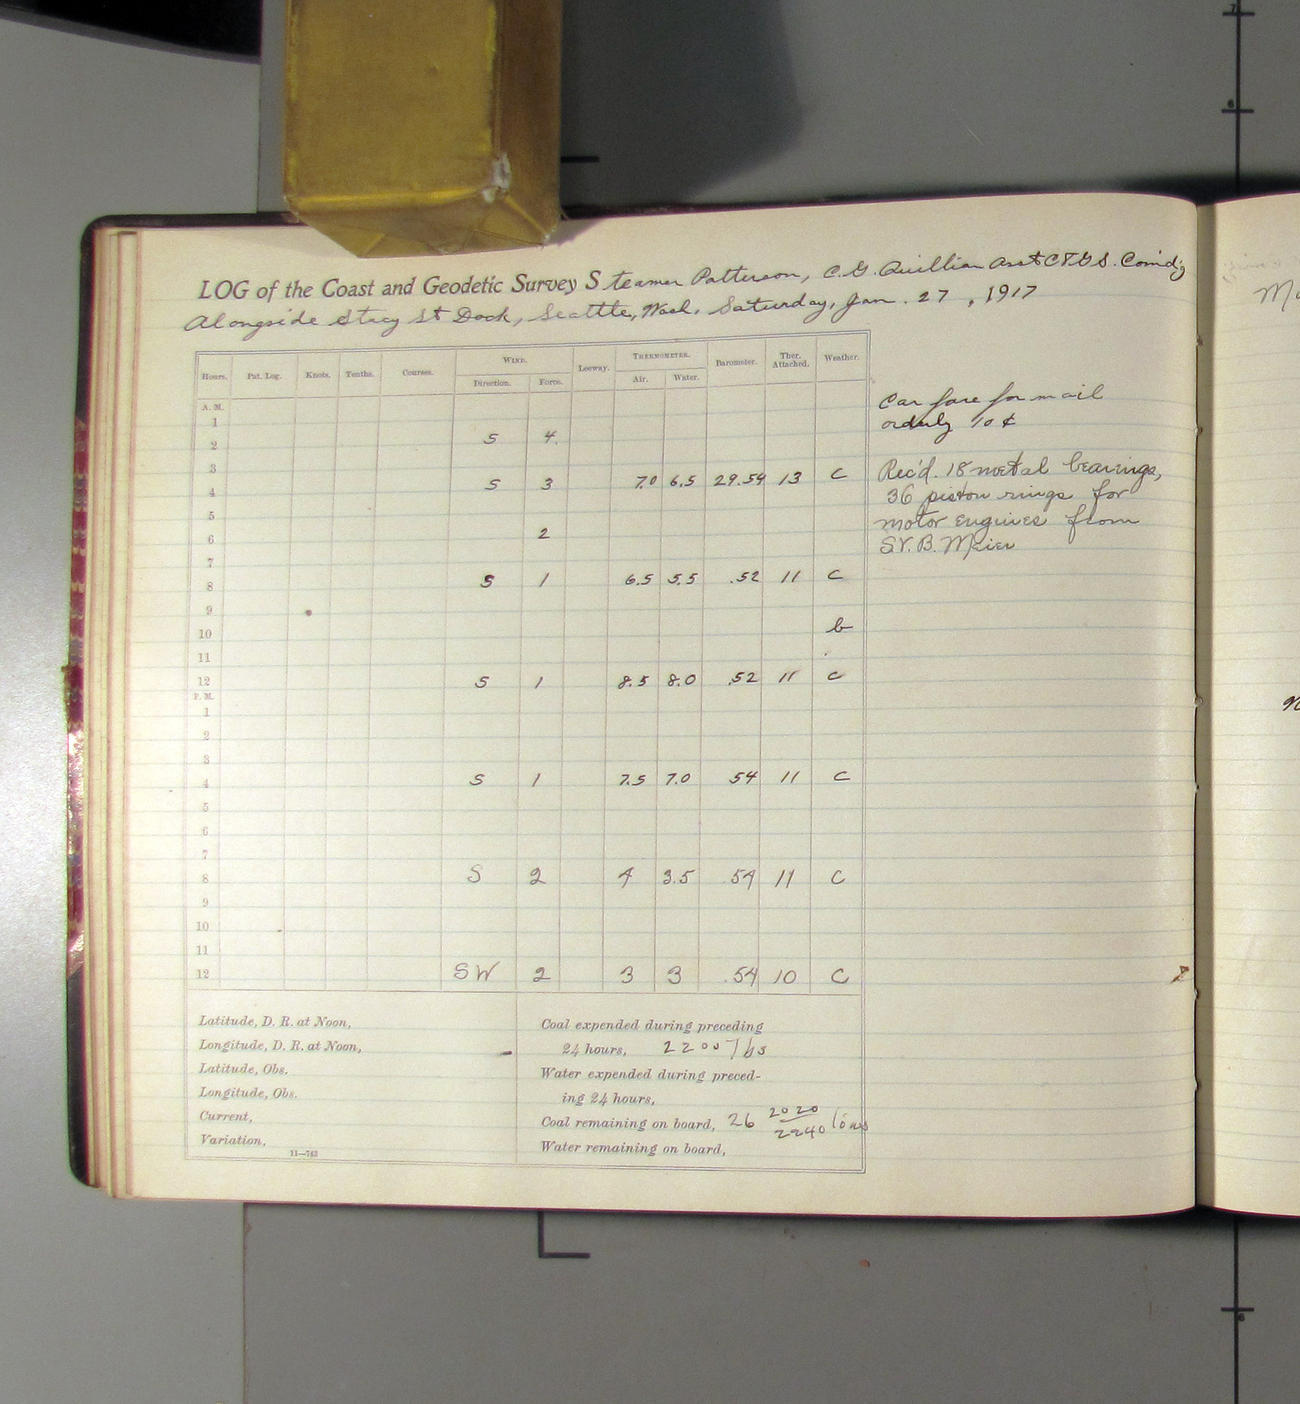 LOG of the Coast and Geodetic Survey Steamer Patterson, C.G. Quillian Asst C&GS. Comd'g
Alongside Stacy St Dock, Seattle, Wash. Saturday, Jan. 27, 1917
Hours. Pat. Log. Knots. Tenths. Courses. WIND. Leeway. THERMOMETER. Barometer. Ther. Attached. Weather.
Direction. Force. Air. Water.
A. M.
1
2 S 4
3
4 S 3 7.0 6.5 29.54 13 C
5
6 2
7
8 S 1 6.5 5.5 .52 11 C
9
10 b
11
12 S 1 8.5 8.0 .52 11 C
P. M.
1
2
3
4 S 1 7.5 7.0 54 11 C
5
6
7
8 S 2 4 3.5 .54 11 C
9
10
11
12 SW 2 3 3 .54 10 C
Car fare for mail
orderly 10 ¢
Rec'd. 18 metal bearings,
36 piston rings for
motor engines from
B. Meier
Latitude, D. R. at Noon,
Longitude, D. R. at Noon,
Latitude, Obs.
Longitude, Obs.
Current,
Variation,
11—743
Coal expended during preceding
24 hours, 2200 lbs
Water expended during preced-
ing 24 hours,
Coal remaining on board, 26 2020/2240 tons
Water remaining on board,
7
6
6